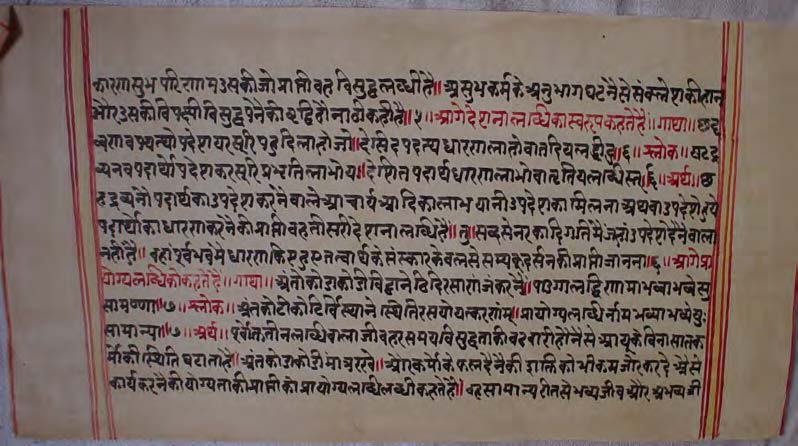 कारण सुभ परिणाम उसकी जो प्राप्ती वह विसुद्ध लब्धी है॥ असुभ कर्म के अनुभाग घटने से संक्लेश की हान
और उसकी विपक्षी विसुद्धपने की वृद्धि होना ठीक ही है॥५॥ आगे देशना लब्धि का स्वरूप कहते हैं॥ गाथा॥ छद्द
व्वणवपयत्थोपदेशयरसूरिपहुदिलाहो जो॥ देसिदपदत्थधारणलाहो वा तदियलद्धी दु॥६॥ श्लोक॥ षटद्र
व्यनवपदार्थोपदेशकरसूरिप्रभृतिलाभो यः॥ देशितपदार्थधारणलाभो वा तृतियलब्धिस्तु॥६॥ अर्थ॥ छ
ह द्रव्य नौ पदार्थ का उपदेश करने वाले आचार्य आदि का लाभ यानी उपदेश का मिलना अथवा उपदेशे हुये
पदार्थों का धारण करने की प्राप्ती वह तीसरी देशना लब्धि है॥ तु॥ सब्द से नरकादि गति में जहां उपदेश देने वाला
नहीं है॥ वहां पूर्वभव में धारण किए हुए तत्वार्थ के संस्कार के वल से सम्यक्दर्सन की प्राप्ति जानना॥६॥ आगे प्रा
योग्यलब्धि को कहते हैं॥ गाथा॥ अंतोकोडाकोडी विट्ठाणे ठिदिरसाण जं करणं॥ पाउग्गलद्धिणामा भव्वाभव्वेसु
सामण्णा॥७॥ श्लोक॥ अंतःकोटीकोटिर्विस्थाने स्थितिरसयो यत्करणम्॥ प्रायोग्यलब्धिर्नाम भव्याभव्येषु
सामान्या॥७॥ अर्थ॥ पूर्वोक्त तीन लब्धि वाला जीव हर समय विसुद्धता की वढवारी होने से आयू के विना सात क
र्मों की स्थिति घटाता है॥ अंतःकोडाकोडी मात्र रखे॥ और कर्मों के फल देने की शक्ति को भी कमजोर कर दे ऐसे
कार्य करने की योग्यता की प्राप्ती को प्रायोग्यलब्धि लब्धी कहते हैं॥ वह सामान्य रीत से भव्य जीव और अभव्य जी